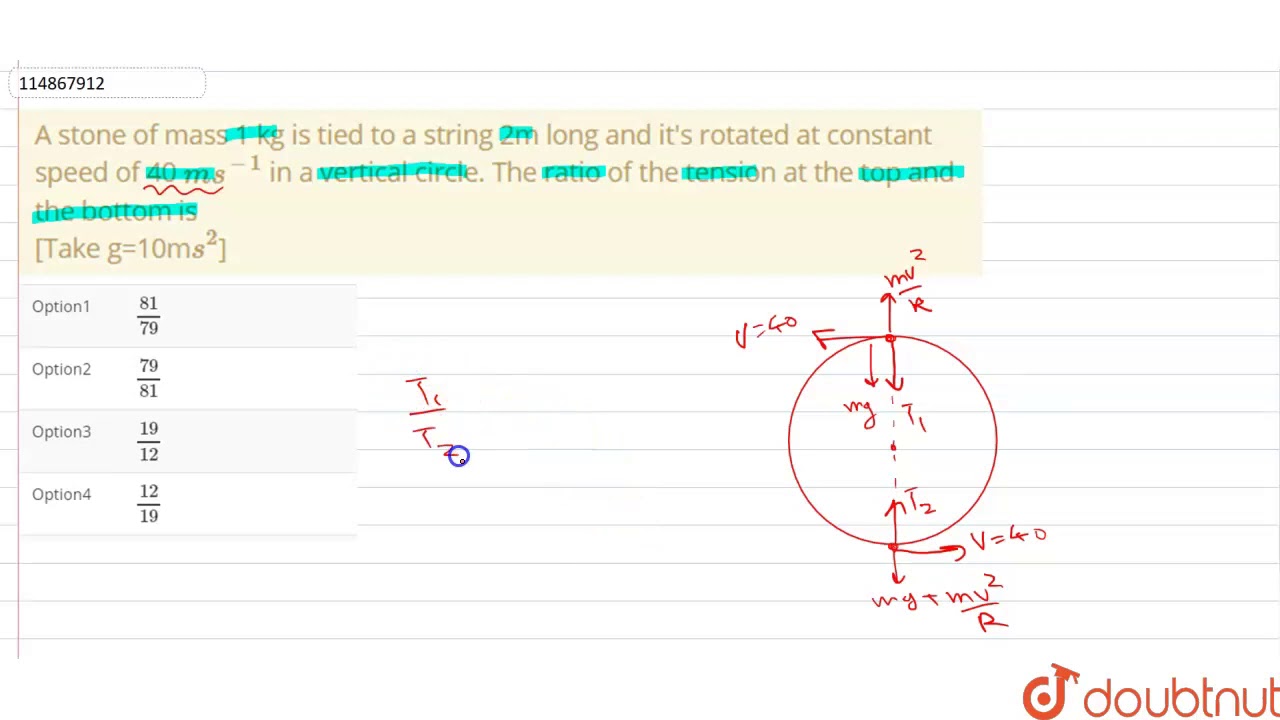 114867912
A stone of mass 1 kg is tied to a string 2m long and it's rotated at constant
speed of 40 ms⁻¹ in a vertical circle. The ratio of the tension at the top and
the bottom is
[Take g=10ms²]
Option1 81/79
Option2 79/81
Option3 19/12
Option4 12/19
T₁/T₂
mv²/R
V=40
mg
T₁
T₂
V=40
mg+mv²/R
doubtnut